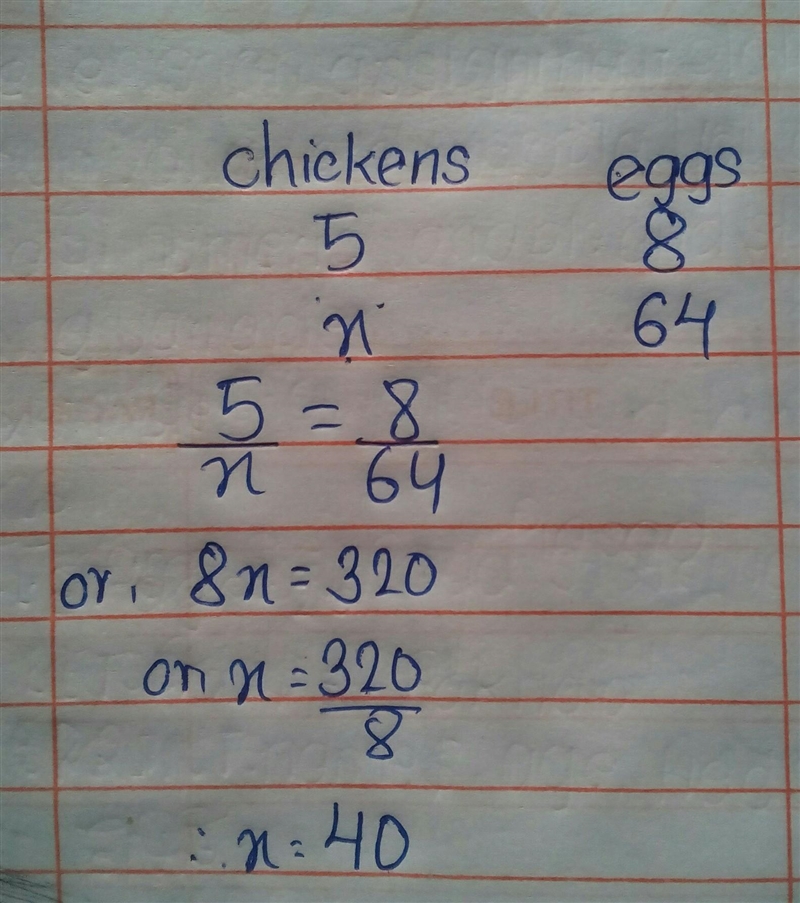 chickens eggs
5 8
x 64
5/x = 8/64
or, 8x = 320
or x = 320/8
∴ x = 40